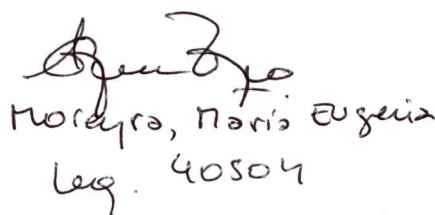 Moreyra, Maria Eugenia
Leg. 40504